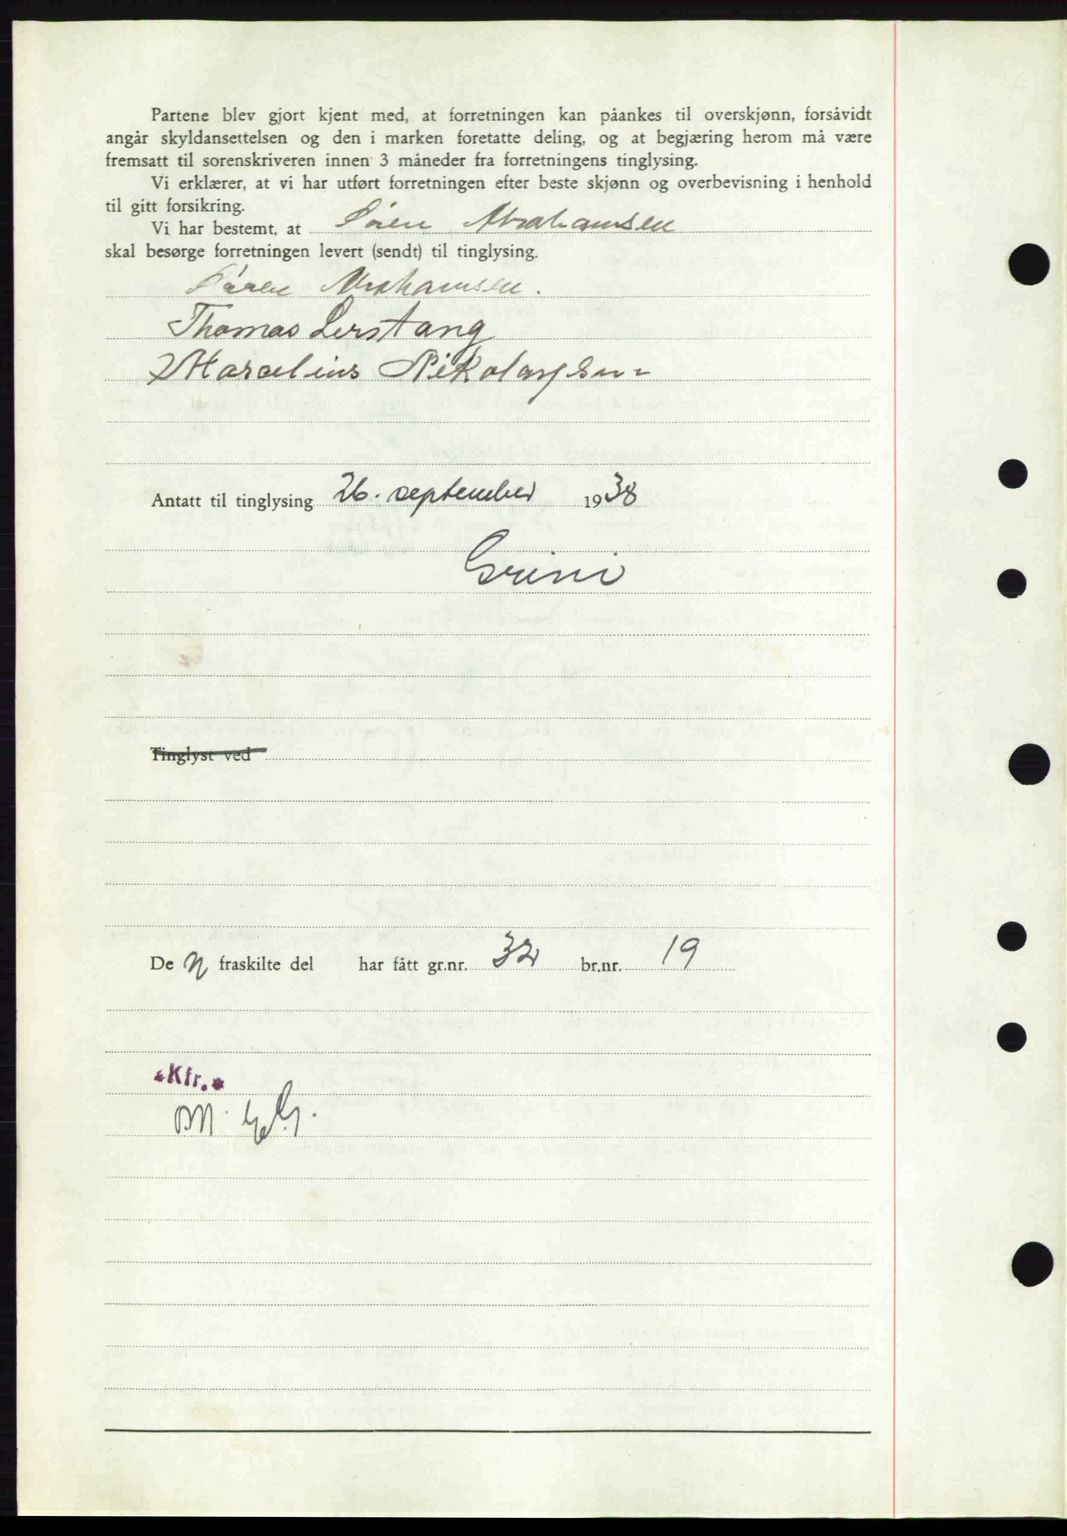 Partene blev gjort kjent med, at forretningen kan påankes til overskjønn, forsåvidt
angår skyldansettelsen og den i marken foretatte deling, og at begjæring herom må være
fremsatt til sorenskriveren innen 3 måneder fra forretningens tinglysing.
Vi erklærer, at vi har utført forretningen efter beste skjønn og overbevisning i henhold
til gitt forsikring.
Vi har bestemt, at Sören Abrahamsen
skal besørge forretningen levert (sendt) til tinglysing.
Sören Abrahamsen.
Thomas Lerstang
Marcelius Nikolaysen
Antatt til tinglysing 26. september 1938
Grini
Tinglyst ved
De n fraskilte del har fått gr.nr. 32 br.nr. 19
*Kfr.*